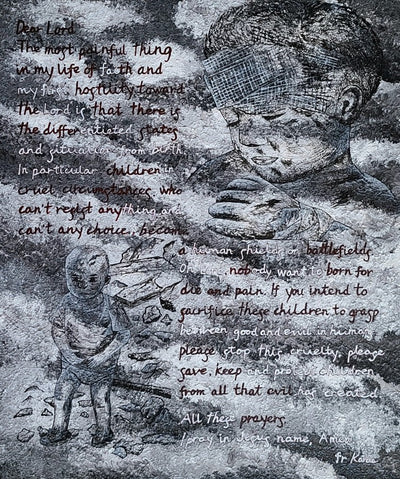 Dear Lord
The most painful thing
in my life of faith and
my first hostility toward
the Lord is that there is
the differentiated states
and situation from birth
In particular children in
cruel circumstances who
can't resist anything and
can't any choice, became
a human shields on battlefields
nobody want to born for
die and pain. If you intend to
sacrifice these children to grasp
between good and evil in human,
please stop this cruelty, please
save, keep and protect children
from all that evil has created.
All these prayers
I pray in Jesus name, Amen